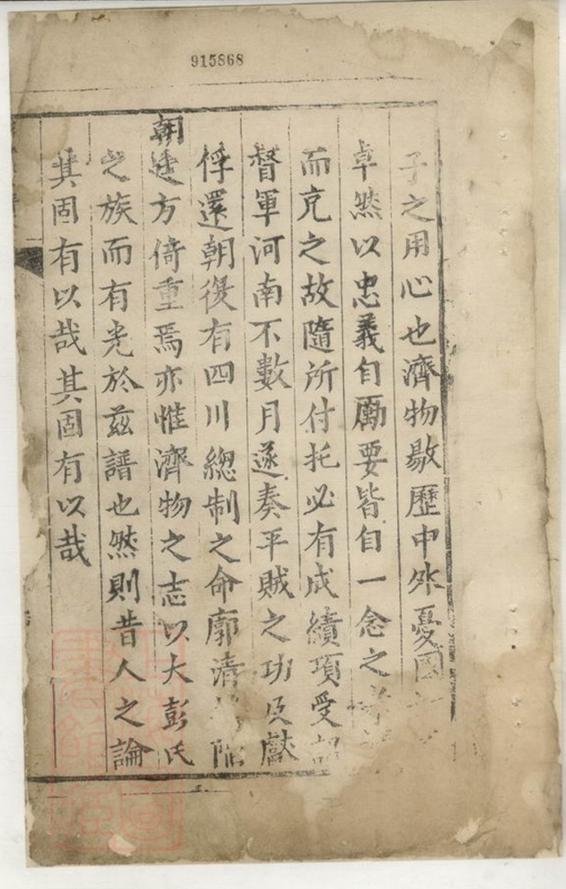 915868
子之用心也濟物敭歷中外憂國
卓然以忠義自勵要皆自一念之
而充之故隨所付托必有成績項受
督軍河南不數月遂奏平賊之功及獻
俘還朝復有四川總制之命廓清
朝廷方倚重焉亦惟濟物之志以大彭氏
之族而有光於兹譜也然則昔人之論
其固有以哉其固有以哉